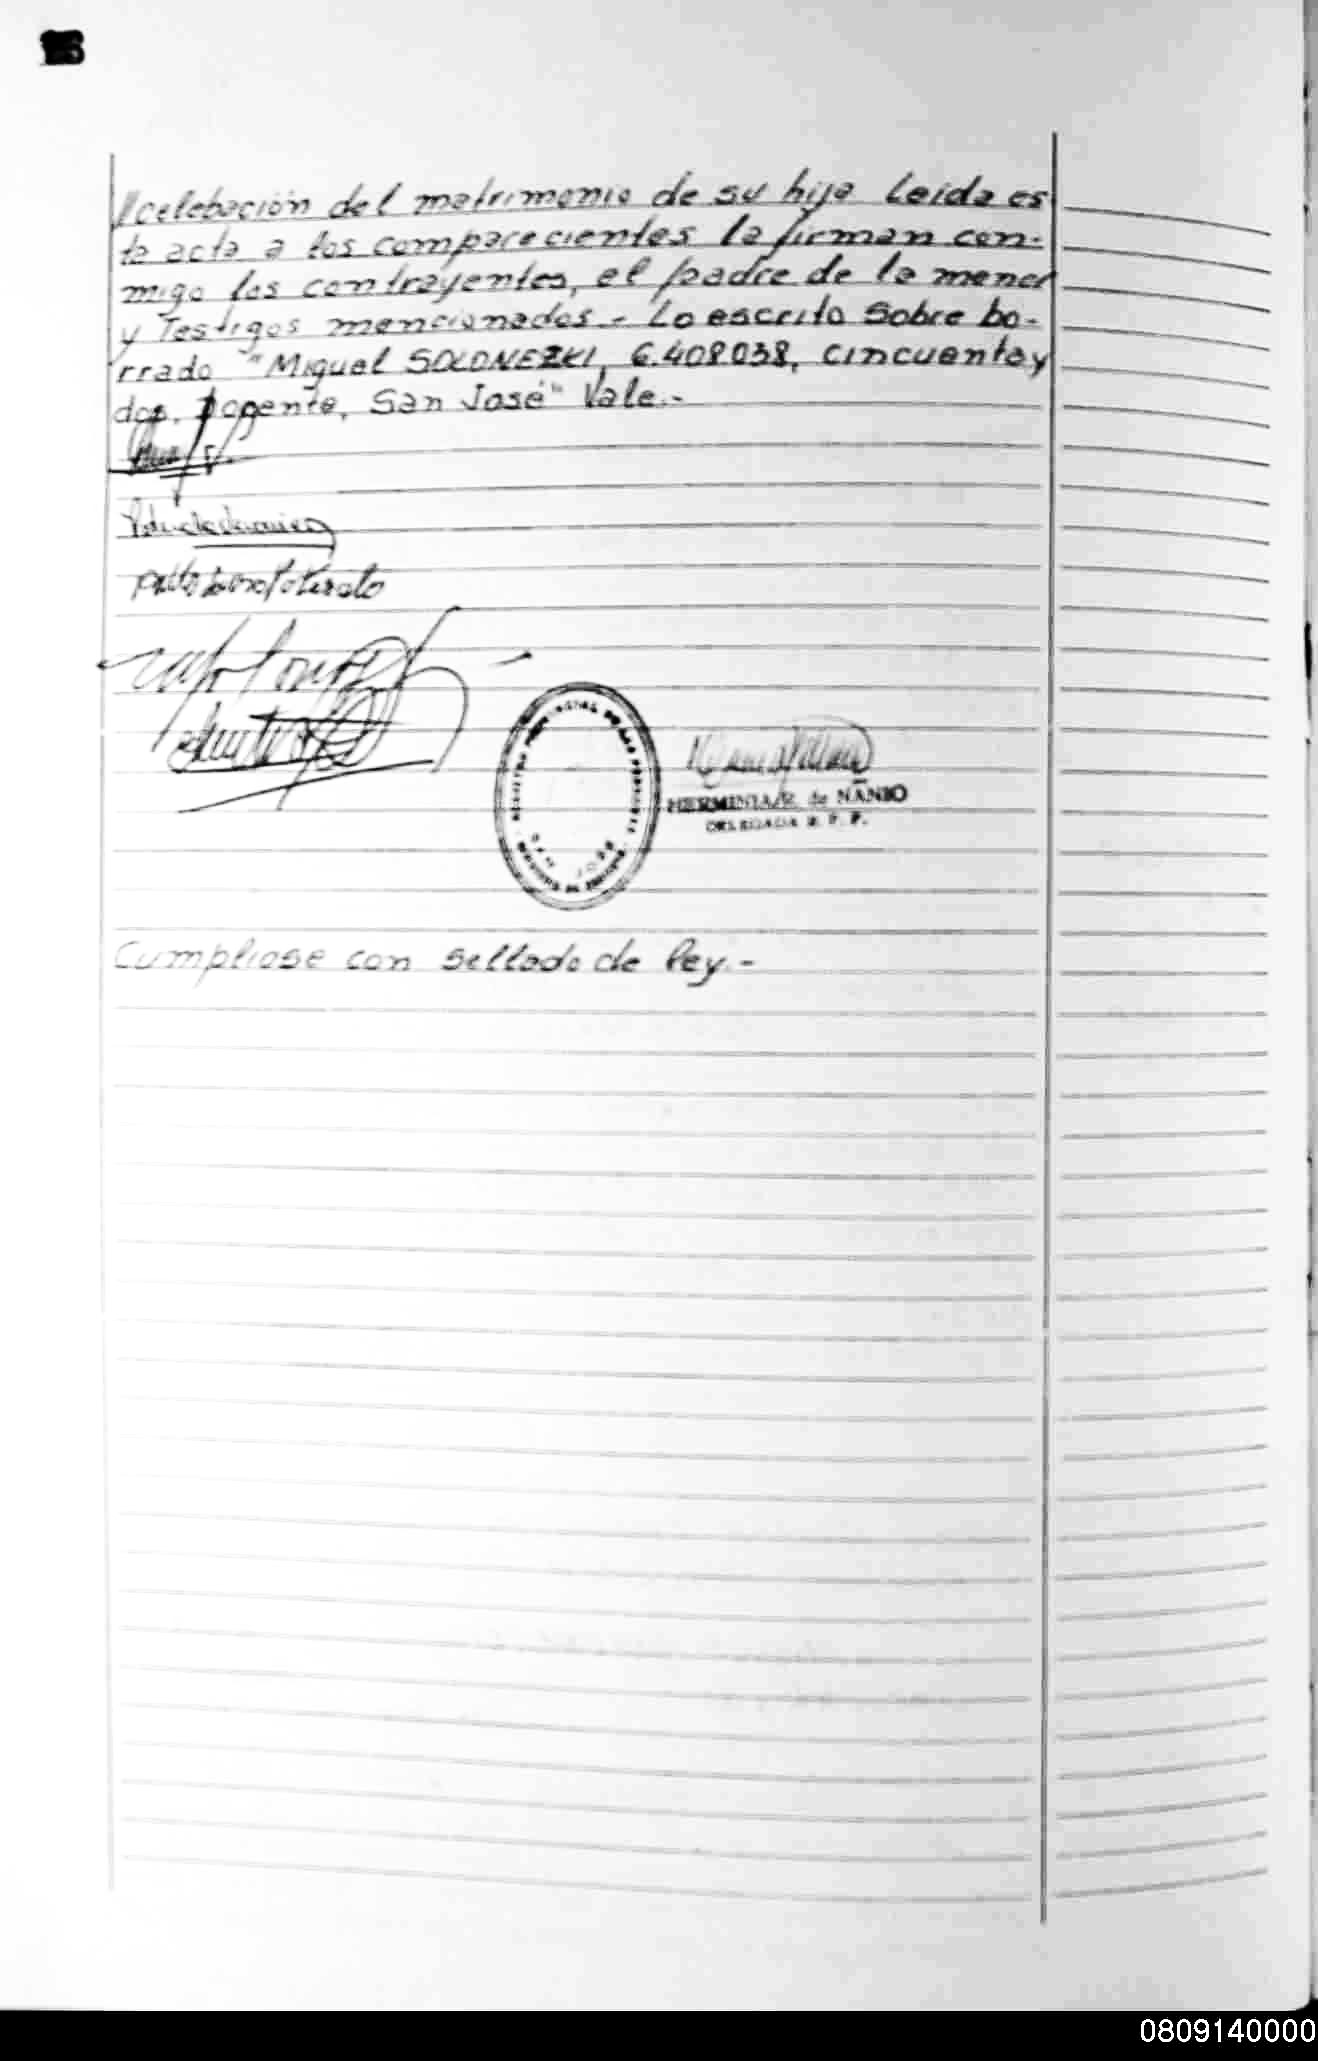 //celebación del matrimonio de su hija Leída es
ta acta a los comparecientes la firman con-
migo los contrayentes, el padre de la menor
y Testigos mencionados.- Lo escrito Sobre bo-
rrado "Miguel SOLONEZKI, 6.408.038, cincuenta y
dos, Docente, San José" Vale.-
HERMINIA R. de NANIO
DELEGADA R. P. P.
SAN JOSE
Cumpliose con sellado de ley.-
0809140000